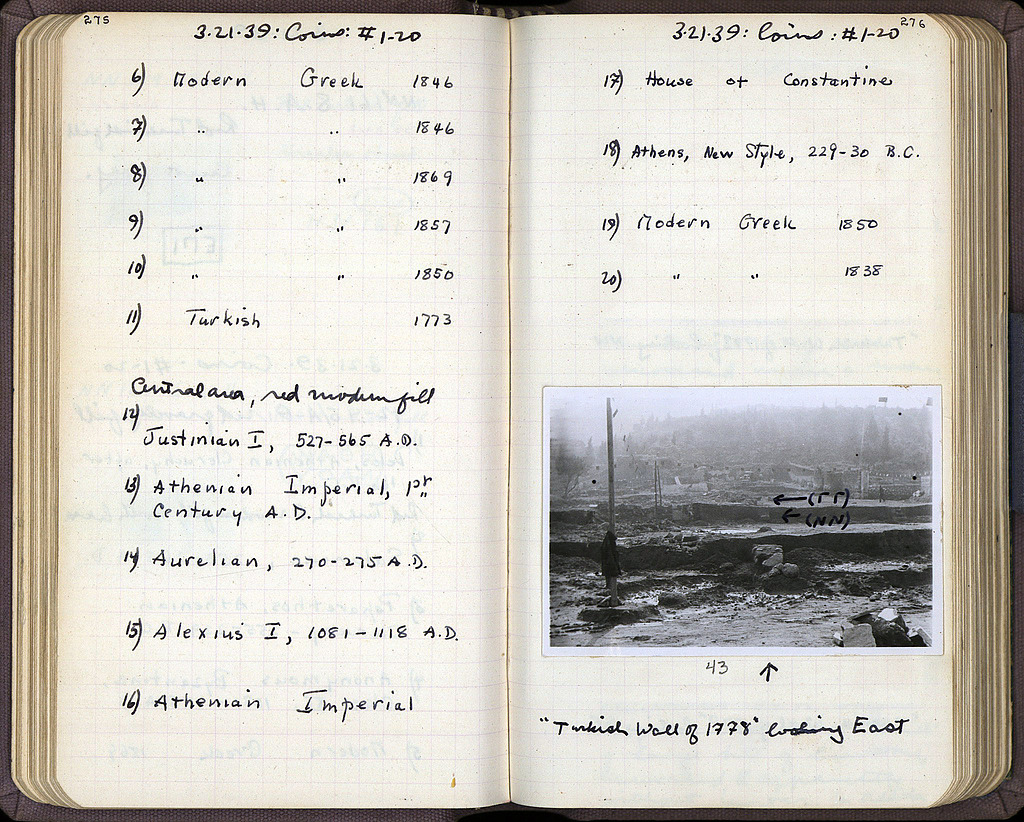 275
3.21.39: Coins: #1-20
6) Modern Greek 1846
7) " " 1846
8) " " 1869
9) " " 1857
10) " " 1850
11) Turkish 1773
Central area, red modern fill
12)
Justinian I, 527-565 A.D.
13) Athenian Imperial, 1st
Century A.D.
14) Aurelian, 270-275 A.D.
15) Alexius I, 1081-1118 A.D.
16) Athenian Imperial
276
3.21.39: Coins: #1-20
17) House of Constantine
18) Athens, New Style, 229-30 B.C.
19) Modern Greek 1850
20) " " 1838
← (ΓΓ)
← (NN)
43 ↑
"Turkish Wall of 1778" looking East